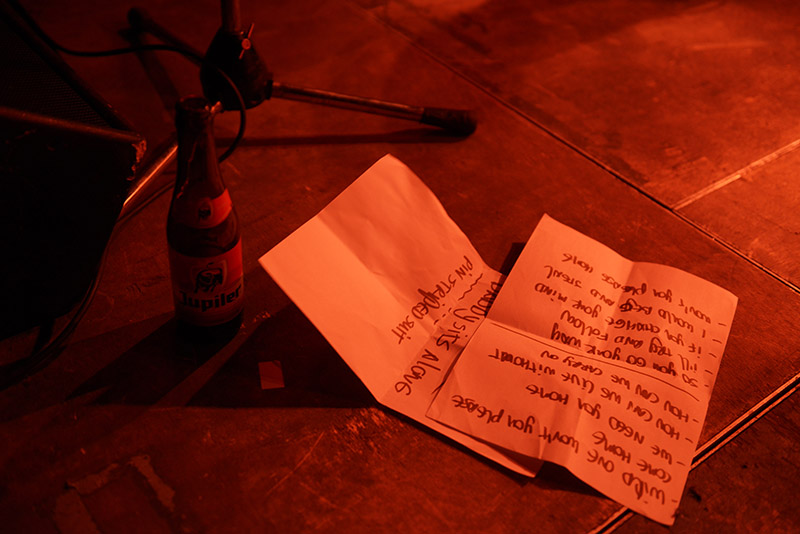 Jupiler
PIN STRIPED SUIT
SITS ALONE
- WILD ONE WON'T YOU PLEASE
COME HOME
- WE NEED YOU HOME
- HOW CAN WE LIVE WITHOUT
- HOW CAN WE CARRY ON
- SO YOU GO YOUR WAY
- I'LL TRY AND FOLLOW
- IF YOU CHANGE YOUR MIND
- I WOULD BEG AND STEAL
- WON'T YOU PLEASE HOME